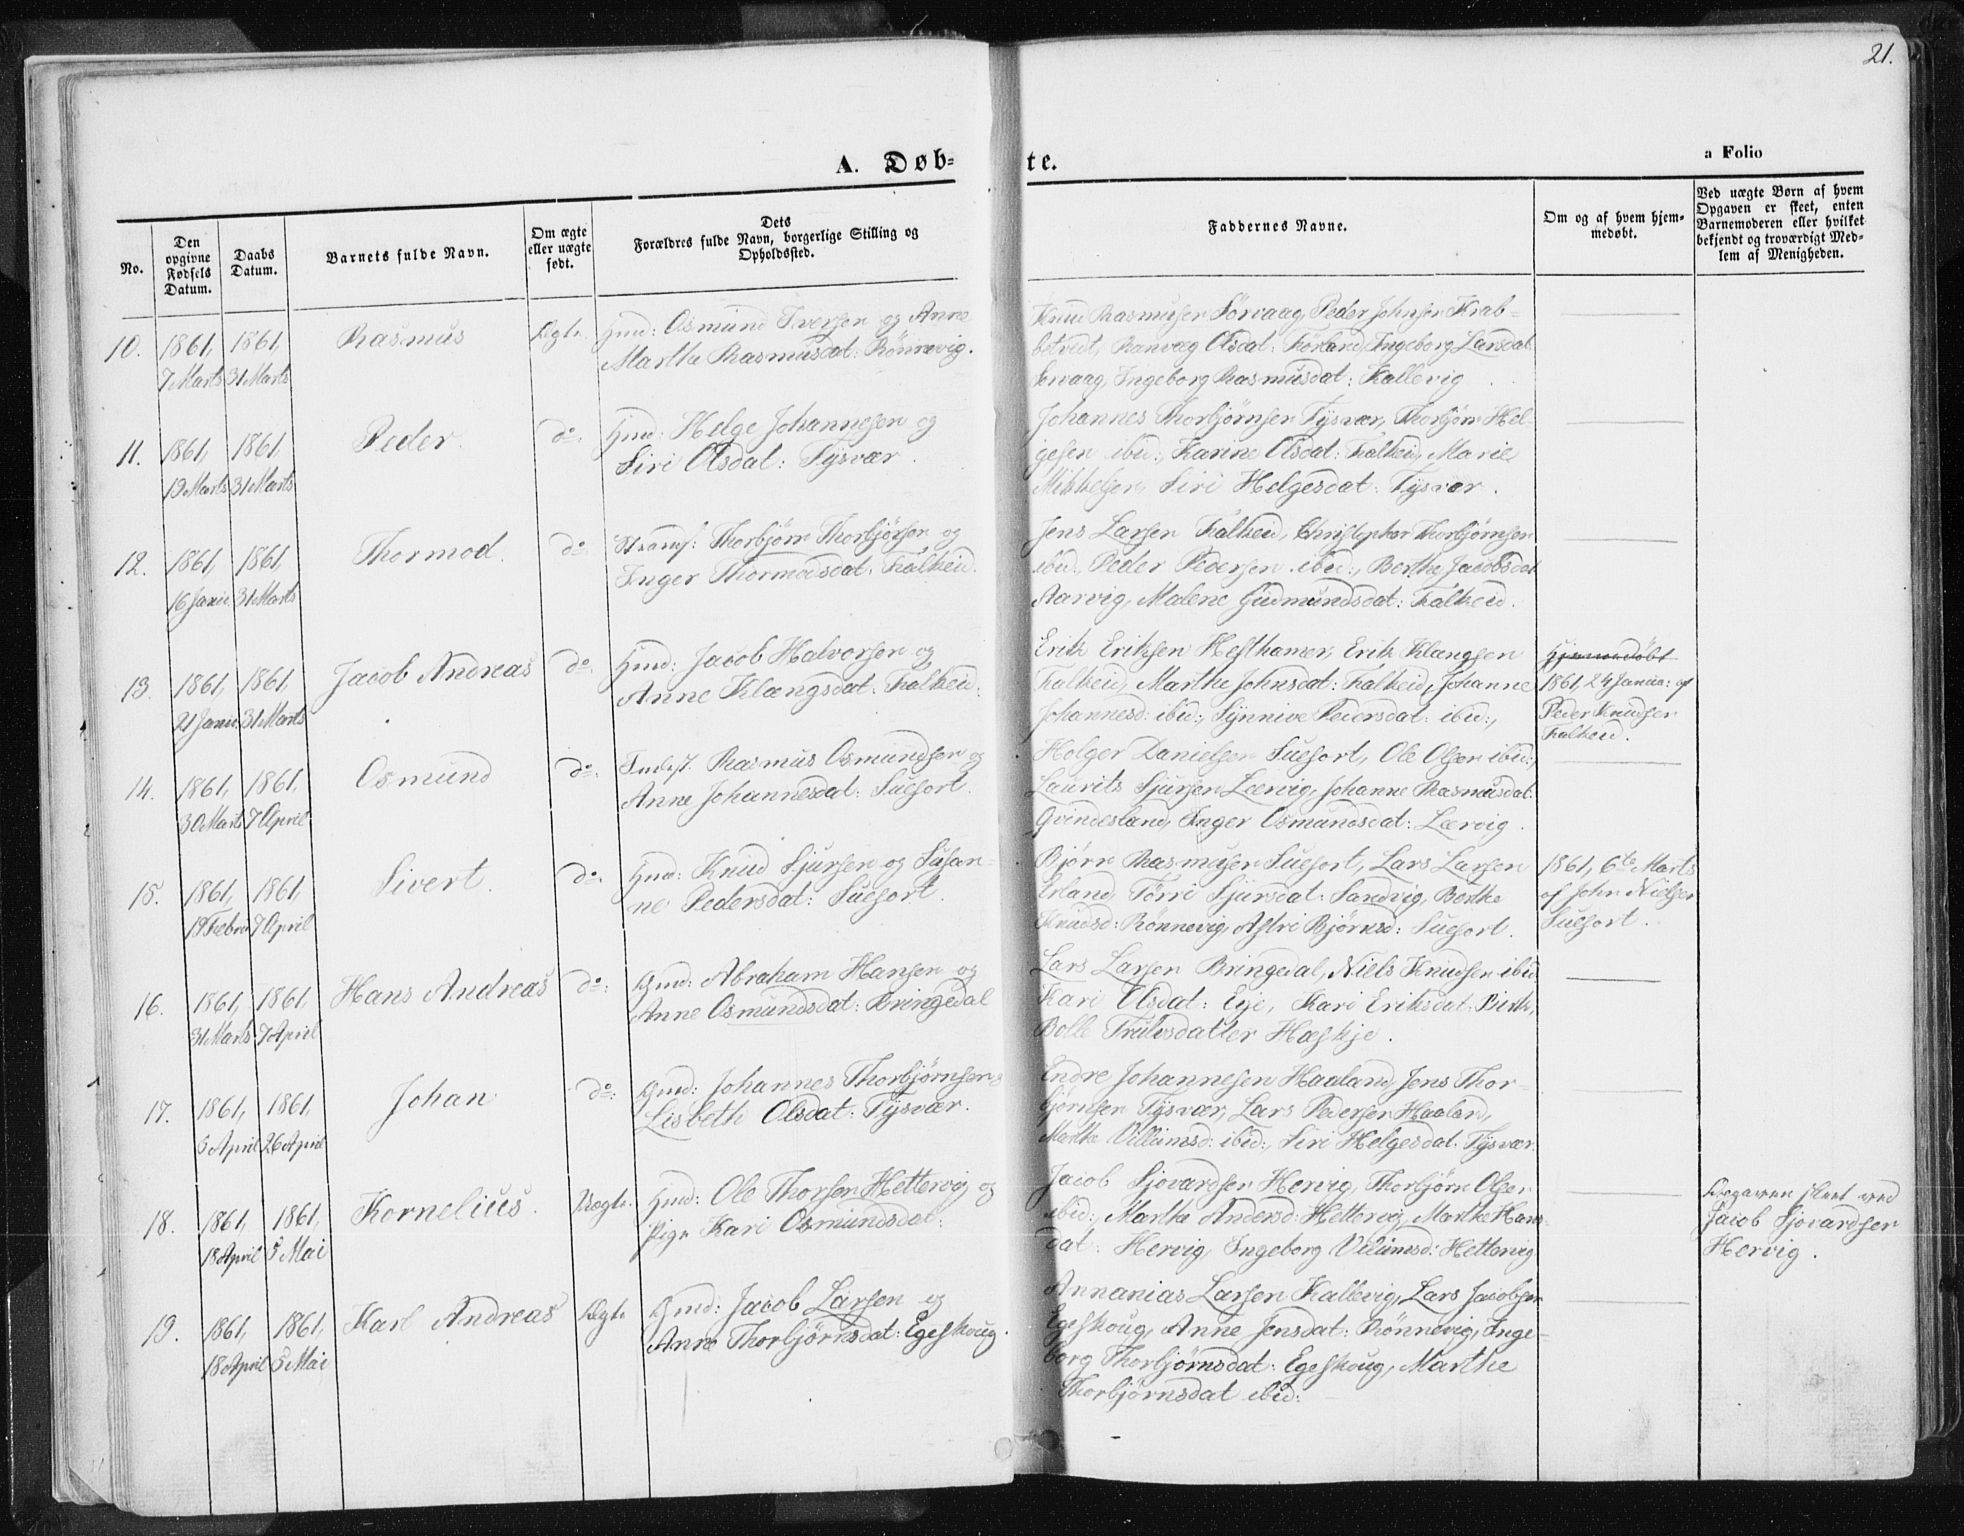 21.
A. Døb-
te.
a Folio
No.
Den
opgivne
Fødsels
Datum.
Daabs
Datum.
Barnets fulde Navn.
Om ægte
eller uægte
født.
Dets
Forældres fulde Navn, borgerlige Stilling og
Opholdssted.
Faddernes Navne.
Om og af hvem hjem-
medøbt.
Ved uægte Børn af hvem
Opgaven er skeet, enten
Barnemoderen eller hvilket
bekjendt og troværdigt Med-
lem af Menigheden.
10.
1861,
7 Marts
1861,
31 Marts
Rasmus
Ægte.
Gmd: Osmund Iversen og Anne
Martha Rasmusdat: Rönnevig.
Knud Rasmusen Sörvaag, Peder Johnsen Krab-
betvedt, Ranvæg Olsdat: Forland, Ingeborg Larsdat:
Sørvaag, Ingeborg Rasmusdat: Kallevig
11.
1861,
19 Marts
1861,
31 Marts
Peder.
do.
Gmd: Helge Johannesen og
Siri Olsdat: Tysvær.
Johannes Thorbjørnsen Tysvær, Thorbjørn Hel-
gesen ibid:, Karine Olsdat: Falkeid, Marie
Mikkelsen, Siri Helgesdat: Tysvær.
12.
1861,
16 Janu.
1861,
31 Marts
Thormod.
do.
Strands: Thorbjørn Thorbjørsen og
Inger Thormodsdat: Falkeid.
Jens Larsen Falkeid, Christopher Thorbjørnsen
ibid. Peder Pedersen ibid:, Berthe Jacobsdat
Aarvig, Malene Gudmundsdat: Falkeid.
13.
1861,
21 Janu.
1861,
31 Marts
Jacob Andreas
do.
Gmd: Jacob Halvorsen og
Anne Klængsdat: Falkeid.
Erik Eriksen Hesthamer, Erik Klængsen
Falkeid, Marthe Johnsdat: Falkeid, Johanne
Johannesd: ibid:, Synnive Pedersdat: ibid:,
Hjemmedöbt
1861, 24 Janua: af
Peder Knudsen
Falkeid.
14.
1861,
30 Marts
1861,
7 April
Osmund
do.
Inderst. Rasmus Osmundsen og
Anne Johannesdat: Suesort.
Holger Danielsen Suesort, Ole Olsen ibid:,
Laurits Sjursen Lærvig, Johanne Rasmusdat:
Gvindesland, Inger Osmundsdat: Lærvig.
15.
1861,
19 Febru
1861,
7 April
Sivert.
do.
Gmd: Knud Sjursen og Susan-
ne Pedersdat: Suesort.
Bjørn Rasmusen Suesort, Lars Larsen
Erland, Törri Sjursdat: Sandvig, Berthe
Knudsd: Rönnevig, Astri Bjørnsd: Suesort.
1861, 6te Marts
af John Nielsen
Suesort.
16.
1861,
31 Marts
1861,
7 April
Hans Andreas
do.
Gmd: Abraham Hansen og
Anne Osmundsdat: Bringedal
Lars Larsen Bringedal, Niels Knudsen ibid
Kari Olsdat: Eye, Kari Eriksdat: Birk,
Bolle Trulsdatter Hæskje.
17.
1861,
5 April
1861,
26 April
Johan
do:
Gmd: Johannes Thorbjørnsen &
Lisbeth Olsdat: Tysvær.
Endre Johannesen Haaland, Jens Thor-
bjørnsen Tysvær, Lars Pedersen Haaland,
Marthe Villumsd: ibid:, Siri Helgesdat: Tysvær.
18.
1861,
18 April
1861,
5 Mai
Kornelius.
Uægte.
Gmd: Ole Thorsen Hettervig og
Pige Kari Osmundsdat:
Jacob Sjovardsen Hervig, Thorbjørn Olsen
ibid:, Marthe Andersd: Hettervig, Marthe Hans-
dat: Hervig, Ingeborg Villumsd: Hettervig
Opgaven skeet ved
Jacob Sjovardsen
Hervig.
19.
1861,
18 April
1861,
5 Mai
Karl Andreas
Ægte
Gmd: Jacob Larsen og
Anne Thorbjørnsdat: Egeskoug.
Annanias Larsen Kallevig, Lars Jacobsen
Egeskoug, Anne Jensdat: Rönnevig, Inge-
borg Thorbjørnsdat: Egeskoug, Marthe
Thorbjørnsdat ibid: